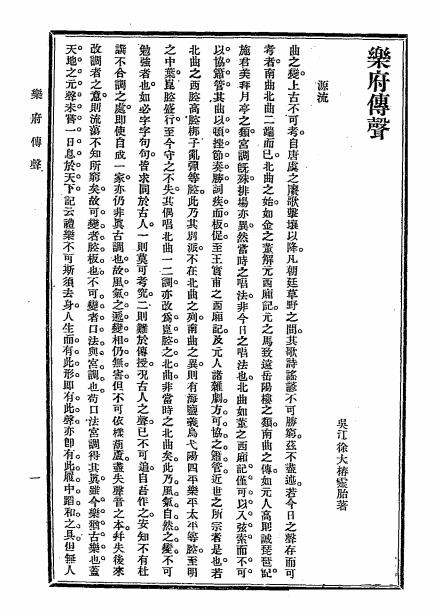 樂府傳聲
吳江徐大椿靈胎著
源流
曲之變。上古不可考。自唐虞之賡歌擊壤以降。凡朝廷草野之間。其歌詩謠諺。不可勝窮。茲不盡述。若今日之聲存而可
考者。南曲北曲二端而已。北曲之始。如金之董解元西廂記。元之馬致遠岳陽樓之類。南曲之傳。如元人高則誠琵琶記。
施君美拜月亭之類。宮調既殊。排場亦異。然當時之唱法。非今日之唱法也。北曲如董之西廂記。僅可以入弦索。而不可
以協簫管。其曲以頓挫節奏勝。詞疾而板促。至王實甫之西廂記。及元人諸雜劇。方可協之簫管。近世之所宗者是也。若
北曲之西腔。高腔。梆子。亂彈等腔。此乃其別派。不在北曲之列。南曲之異。則有海鹽。義烏。弋陽。四平。樂平。太平等腔。至明
之中葉。崑腔盛行。至今守之不失。其偶唱北曲一二調。亦改爲崑腔之北曲。非當時之北曲矣。此乃風氣自然之變。不可
勉強者也。如必字字句句。皆求同於古人。一則莫可考究。二則難於傳授。況古人之聲。已不可追。自吾作之。安知不有杜
譔不合調之處。即使自成一家。亦仍非眞古調也。故風氣之遞變。相仍無害。但不可依樣葫蘆。盡失聲音之本。幷失後來
改調者之意。則流蕩不知所窮矣。故可變者腔板也。不可變者口法與宮調也。苟口法宮調得其眞。雖今樂猶古樂也。蓋
天地之元聲。未嘗一日息於天下。記云。禮樂不可斯須去身。人生而有此形。即有此聲。亦卽有此履中蹈和之具。但無人
樂府傳聲
一